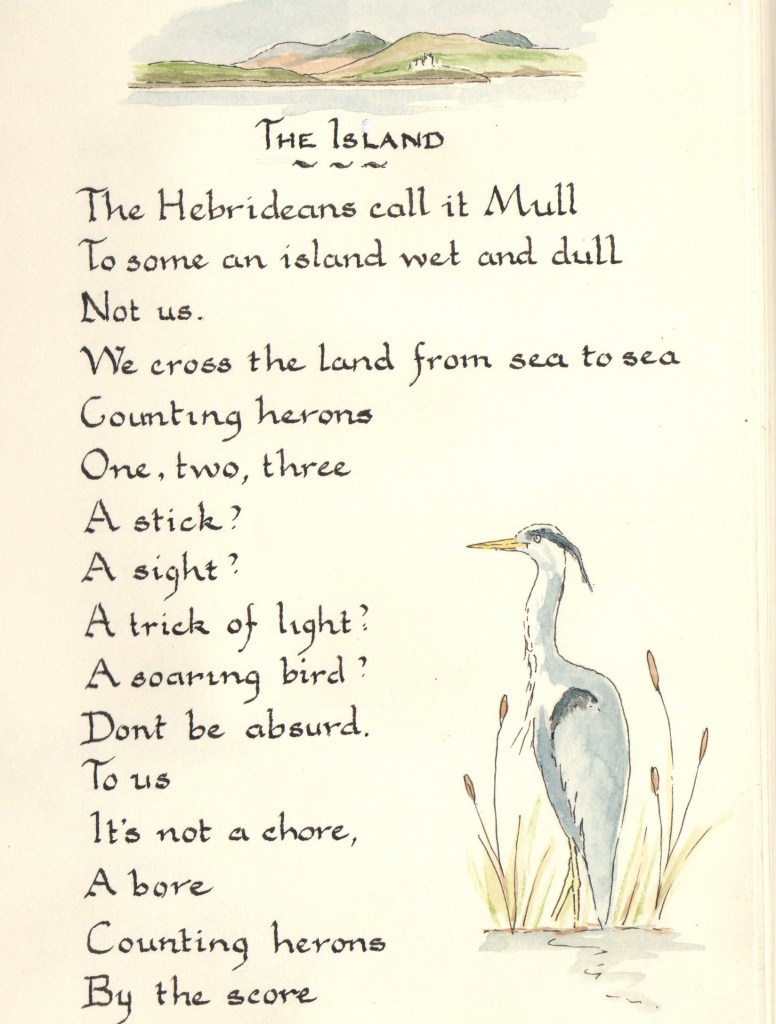 The Island
The Hebrideans call it Mull
To some an island wet and dull
Not us.
We cross the land from sea to sea
Counting herons
One, two, three
A stick?
A sight?
A trick of light?
A soaring bird?
Dont be absurd.
To us
It's not a chore,
A bore
Counting herons
By the score